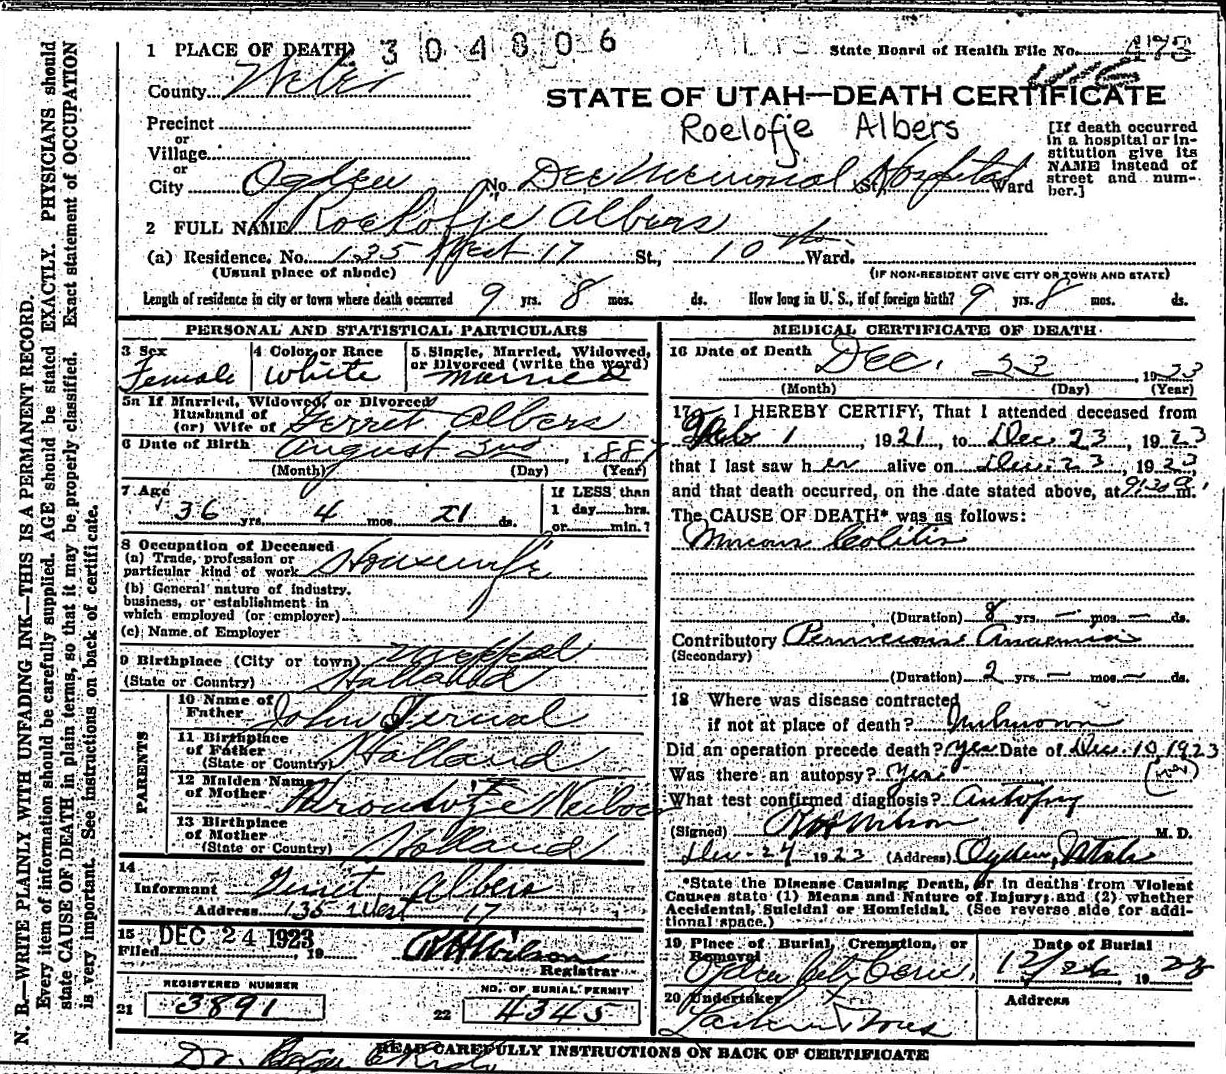 1 PLACE OF DEATH 304806 State Board of Health File No. 473
County Weber
STATE OF UTAH—DEATH CERTIFICATE
Roelofje Albers
Precinct
or
Village
or
City Ogden No. Dee Memorial Hospital (St., Ward
[If death occurred in a hospital or institution give its NAME instead of street and number.]
2 FULL NAME Roelofje Albers
(a) Residence, No. 135 West 17 St., 10th Ward,
(Usual place of abode) (IF NON-RESIDENT GIVE CITY OR TOWN AND STATE)
Length of residence in city or town where death occurred 9 yrs. 8 mos. ds. How long in U. S., if of foreign birth? 9 yrs. 8 mos. ds.
PERSONAL AND STATISTICAL PARTICULARS
3 Sex Female
4 Color or Race White
5. Single, Married, Widowed, or Divorced (write the word) Married
5a If Married, Widowed, or Divorced
Husband of
(or) Wife of Gerret Albers
6 Date of Birth August 3rd, 1887
(Month) (Day) (Year)
7 Age 36 yrs. 4 mos. 21 ds.
If LESS than
1 day....hrs.
or....min.?
8 Occupation of Deceased
(a) Trade, profession or
particular kind of work Housewife
(b) General nature of industry,
business, or establishment in
which employed (or employer)
(c) Name of Employer
9 Birthplace (City or town) Meppel
(State or Country) Holland
PARENTS
10 Name of
Father John
11 Birthplace
of Father Holland
(State or Country)
12 Maiden Name
of Mother
13 Birthplace
of Mother Holland
(State or Country)
14
Informant Gerrit Albers
Address 135 West 17
15 DEC 24 1923
Filed, 19 R H Wilson
Registrar
REGISTERED NUMBER
21 3891
NO. OF BURIAL PERMIT
22 4345
MEDICAL CERTIFICATE OF DEATH
16 Date of Death Dec. 23, 1923
(Month) (Day) (Year)
17 I HEREBY CERTIFY, That I attended deceased from
Feb 1, 1921, to Dec 23, 1923
that I last saw her alive on Dec. 23, 1923
and that death occurred, on the date stated above, at 9:30 a.m.
The CAUSE OF DEATH* was as follows:
Mucous Colitis
(Duration) 8 yrs. — mos. — ds.
Contributory Pernicious Anaemia
(Secondary)
(Duration) 2 yrs. — mos. — ds.
18 Where was disease contracted
if not at place of death? Unknown
Did an operation precede death? Yes Date of Dec. 10, 1923
Was there an autopsy? Yes
What test confirmed diagnosis? Autopsy
(Signed) M. D.
Dec - 24 - 1923 (Address) Ogden, Utah
*State the Disease Causing Death, or in deaths from Violent
Causes state (1) Means and Nature of Injury; and (2) whether
Accidental, Suicidal or Homicidal. (See reverse side for additional space.)
19 Place of Burial, Cremation, or
Removal
Ogden City Cem.
Date of Burial
12/26 1923
20 Undertaker
Larkin & Sons
Address
READ CAREFULLY INSTRUCTIONS ON BACK OF CERTIFICATE
Dr.
N. B.—WRITE PLAINLY WITH UNFADING INK—THIS IS A PERMANENT RECORD.
Every item of information should be carefully supplied. AGE should be stated EXACTLY. PHYSICIANS should
state CAUSE OF DEATH in plain terms, so that it may be properly classified. Exact statement of OCCUPATION
is very important. See instructions on back of certificate.